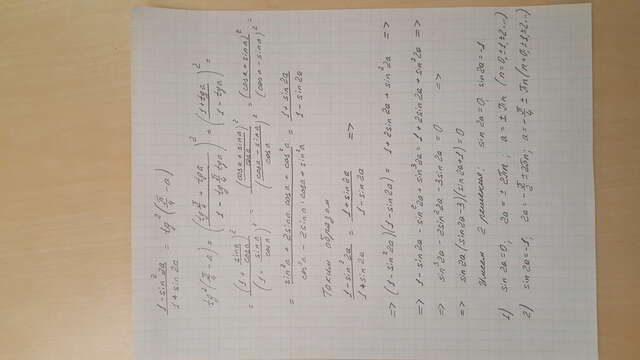 (1-sin²2a)/(1+sin2a) = tg²(π/4 - a)
tg²(π/4 - a) = ((tg π/4 + tga)/(1 - tg π/4 tga))² = ((1+tga)/(1-tga))² =
= (1 + sina/cosa)²/(1 - sina/cosa)² = ((cosa+sina)/cosa)²/((cosa-sina)/cosa)² = (cosa+sina)²/(cosa-sina)² =
= (sin²a + 2sina cosa + cos²a)/(cos²a - 2sina·cosa + sin²a) = (1+sin2a)/(1-sin2a)
Таким образом
(1-sin²2a)/(1+sin2a) = (1+sin2a)/(1-sin2a) =>
=> (1-sin²2a)(1-sin2a) = 1+2sin2a+sin²2a =>
=> 1-sin2a-sin²2a+sin³2a=1+2sin2a+sin²2a =>
=> sin³2a-2sin²2a-3sin2a = 0 =>
=> sin2a(sin2a-3)(sin2a+1)=0
Имеем 2 решения: sin2a=0, sin2a=-1
1) sin2a=0, 2a = ± 2πn, a = ± πn (n=0,±1,±2...)
2) sin2a=-1, 2a = -π/2 ± 2πn, a = -π/4 ± πn (n=0,±1,±2...)